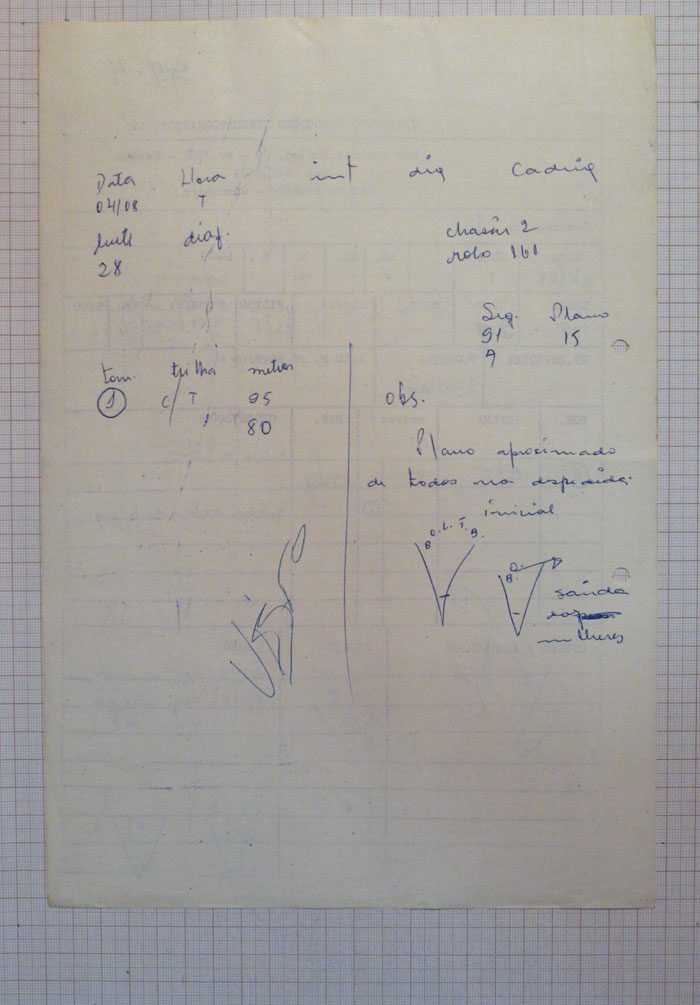 Data Hora int dia
04/08 T
diaf.
28
chassis 2
rolo 161
Seq. Plano
91 15
A
tom. trilha metros
1 c/T 95
80
Obs.
Plano aproximado
de todos na despedida
inicial
B O. L. T. B.
B O.
saída
mulheres